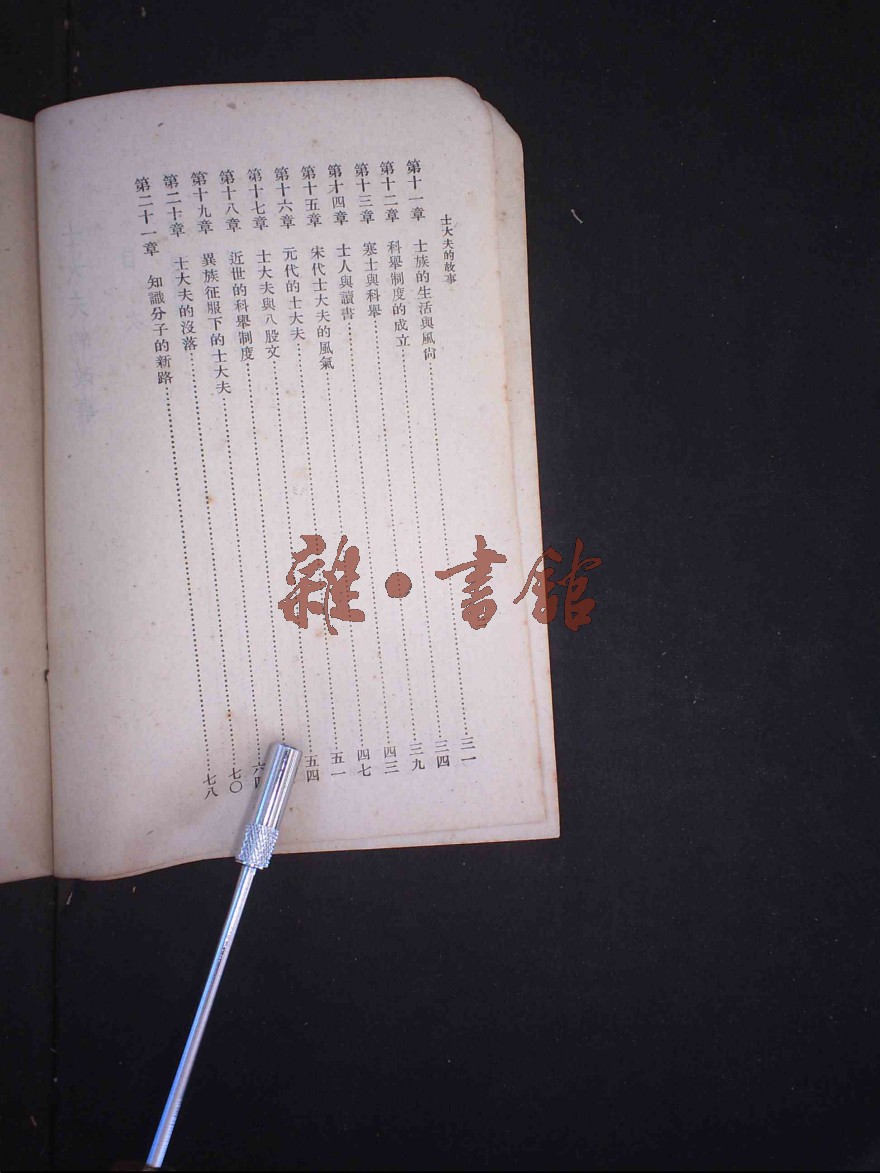 士大夫的故事
第十一章 士族的生活與風尙……三一
第十二章 科舉制度的成立……三四
第十三章 寒士與科舉……三九
第十四章 士人與讀書……四三
第十五章 宋代士大夫的風氣……四七
第十六章 元代的士大夫……五一
第十七章 士大夫與八股文……五四
第十八章 近世的科舉制度……
第十九章 異族征服下的士大夫……六
第二十章 士大夫的沒落……七〇
第二十一章 知識分子的新路……七八
雜·書館